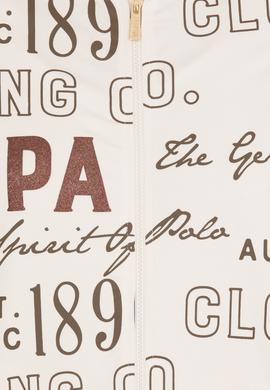 T:C 189 CLO
NG CO.
PA The Ge
Spirit Of Polo
AU
T:C 189 CLO
NG CO.